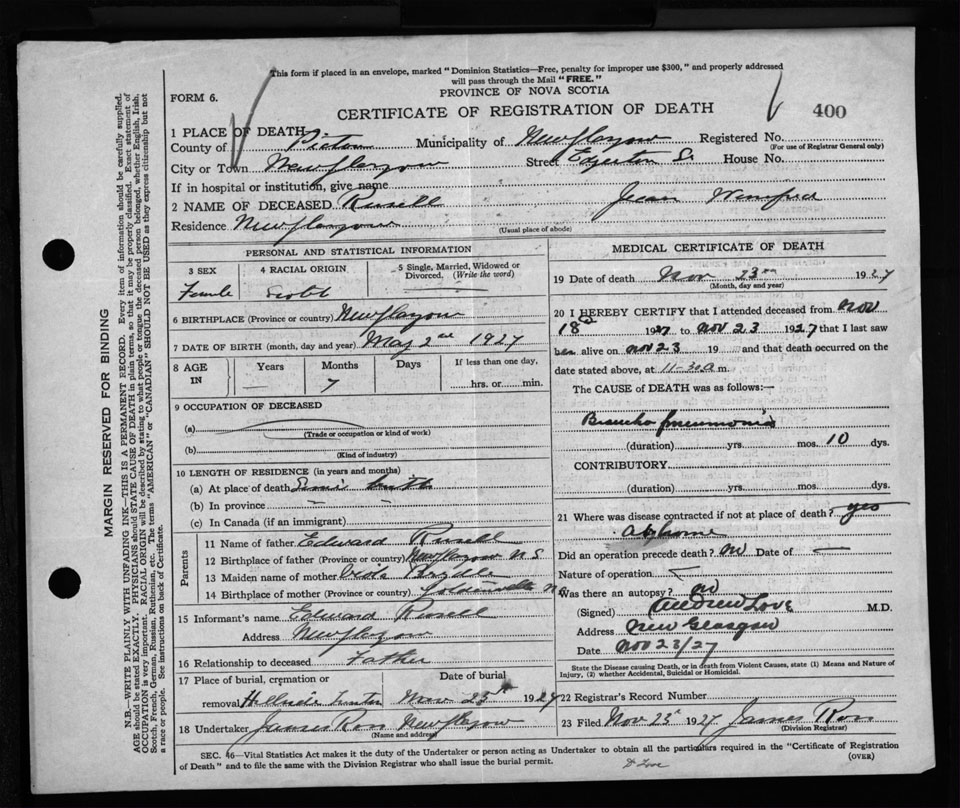 This form if placed in an envelope, marked "Dominion Statistics—Free, penalty for improper use $300," and properly addressed
will pass through the Mail "FREE."
PROVINCE OF NOVA SCOTIA
FORM 6.
CERTIFICATE OF REGISTRATION OF DEATH
400
1 PLACE OF DEATH
County of Pictou Municipality of New Glasgow Registered No.
(For use of Registrar General only)
City or Town New Glasgow Street Egerton St. House No.
If in hospital or institution, give name
2 NAME OF DECEASED Russell Jean Winnifred
Residence New Glasgow
(Usual place of abode)
PERSONAL AND STATISTICAL INFORMATION
3 SEX 4 RACIAL ORIGIN 5 Single, Married, Widowed or Divorced. (Write the word)
Female Scotch
6 BIRTHPLACE (Province or country) New Glasgow
7 DATE OF BIRTH (month, day and year) May 2nd 1927
8 AGE IN Years Months Days If less than one day,
7 hrs. or min.
9 OCCUPATION OF DECEASED
(a)
(Trade or occupation or kind of work)
(b)
(Kind of industry)
10 LENGTH OF RESIDENCE (in years and months)
(a) At place of death Since birth
(b) In province
(c) In Canada (if an immigrant)
Parents
11 Name of father Edward Russell
12 Birthplace of father (Province or country) New Glasgow N S
13 Maiden name of mother
14 Birthplace of mother (Province or country) Goldenville N
15 Informant's name Edward Russell
Address New Glasgow
16 Relationship to deceased Father
17 Place of burial, cremation or Date of burial
removal Hillside Nov 25th 1927
18 Undertaker James Ross New Glasgow
(Name and address)
MEDICAL CERTIFICATE OF DEATH
19 Date of death Nov 23rd 1927
(Month, day and year)
20 I HEREBY CERTIFY that I attended deceased from Nov
18th 1927 to Nov 23 1927 that I last saw
her alive on Nov 23 19 and that death occurred on the
date stated above, at 11-30 a m.
The CAUSE of DEATH was as follows:—
Broncho pneumonia
(duration) yrs. mos. 10 dys.
CONTRIBUTORY
(duration) yrs. mos. dys.
21 Where was disease contracted if not at place of death? yes
At home
Did an operation precede death? no Date of —
Nature of operation —
Was there an autopsy? no
(Signed) Andrew Love M.D.
Address New Glasgow
Date Nov 23/27
State the Disease causing Death, or in death from Violent Causes, state (1) Means and Nature of
Injury, (2) whether Accidental, Suicidal or Homicidal.
22 Registrar's Record Number
23 Filed Nov 25 1927 James Ross
(Division Registrar)
SEC. 46—Vital Statistics Act makes it the duty of the Undertaker or person acting as Undertaker to obtain all the particulars required in the "Certificate of Registration
of Death" and to file the same with the Division Registrar who shall issue the burial permit. (OVER)
D Love
MARGIN RESERVED FOR BINDING
N.B.—WRITE PLAINLY WITH UNFADING INK—THIS IS A PERMANENT RECORD. Every item of information should be carefully supplied.
AGE should be stated EXACTLY. PHYSICIANS should STATE CAUSE OF DEATH in plain terms, so that it may be properly classified. Exact statement of
OCCUPATION is very important. RACIAL ORIGIN will be described by stating to what people or tongue the deceased person belonged, whether English, Irish,
Scotch, French, German, Russian, Ruthenian, etc. The terms "AMERICAN" or "CANADIAN" SHOULD NOT BE USED as they express citizenship but not
a race or people. See instructions on back of Certificate.